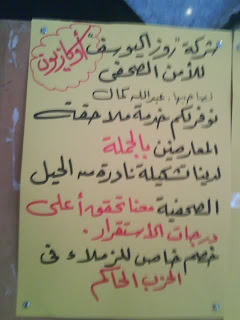 شركة "روز اليوسف"
أوكازيون
للأمن الصحفى
لصاحبها: عبدالله كمال
نوفر لكم خدمة ملاحقة
المعارضين بالجملة
لدينا تشكيلة نادرة من الحيل
الصحفية معنا تحققه أعلى
درجات الاستقرار.
خصم خاص للزملاء فى
الحزب الحاكم